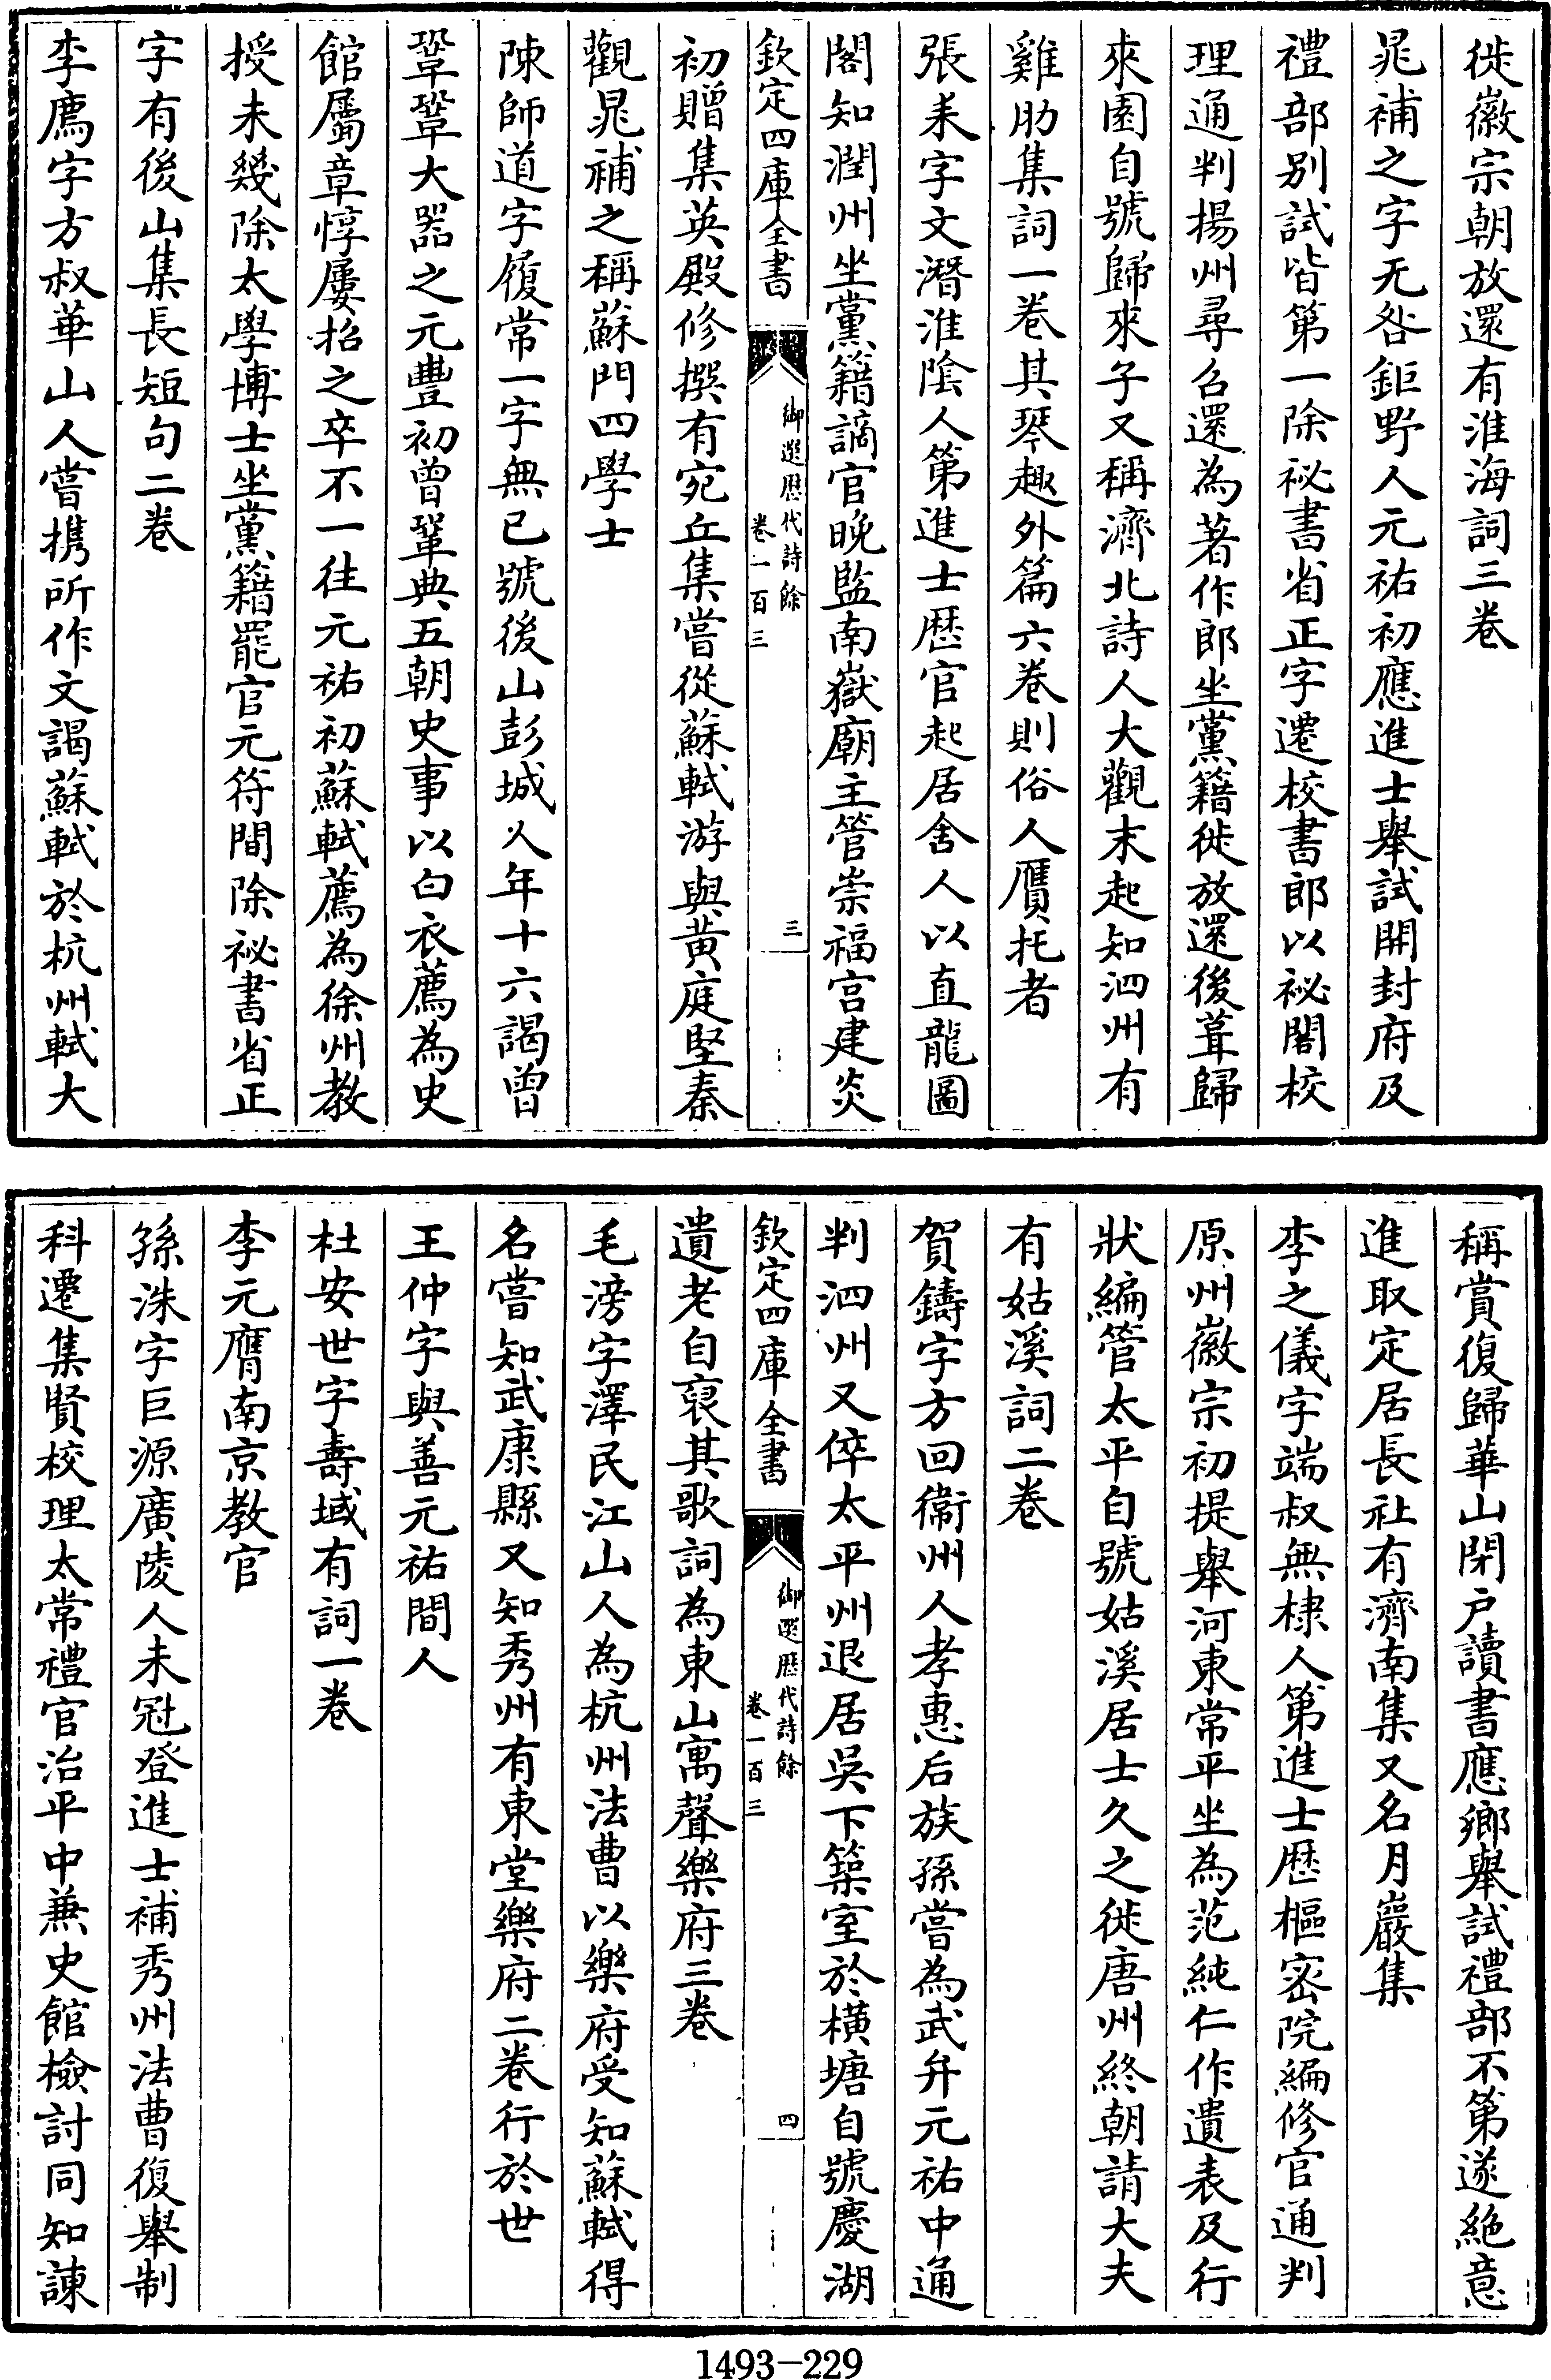 徙徽宗朝放還有淮海詞三卷
晁補之字无咎鉅野人元祐初應進士舉試開封府及
禮部别試皆第一除祕書省正字遷校書郎以祕閣校
理通判揚州尋召還為著作郎坐黨籍徙放還後葺歸
來園自號歸來子又稱濟北詩人大觀末起知泗州有
雞肋集詞一卷其琴趣外篇六卷則俗人贋托者
張耒字文潛淮隂人第進士歴官起居舍人以直龍圖
閣知潤州坐黨籍謫官晚監南嶽廟主管崇福宫建炎
欽定四庫全書
御選歴代詩餘
卷一百三
三
初贈集英殿修撰有宛丘集嘗從蘇軾游與黄庭堅秦
觀晁補之稱蘇門四學士
陳師道字履常一字無已號後山彭城人年十六謁曾
鞏鞏大器之元豐初曾鞏典五朝史事以白衣薦為史
館屬章惇屢招之卒不一往元祐初蘇軾薦為徐州教
授未幾除太學博士坐黨籍罷官元符間除祕書省正
字有後山集長短句二卷
李廌字方叔華山人嘗擕所作文謁蘇軾於杭州軾大
稱賞復歸華山閉户讀書應鄉舉試禮部不第遂絶意
進取定居長社有濟南集又名月巖集
李之儀字端叔無棣人第進士歴樞宻院編修官通判
原州徽宗初提舉河東常平坐為范純仁作遺表及行
狀編管太平自號姑溪居士久之徙唐州終朝請大夫
有姑溪詞二卷
賀鑄字方回衞州人孝惠后族孫嘗為武弁元祐中通
判泗州又倅太平州退居吳下築室於横塘自號慶湖
欽定四庫全書
御選歴代詩餘
卷一百三
四
遺老自裒其歌詞為東山寓聲樂府三卷
毛滂字澤民江山人為杭州法曹以樂府受知蘇軾得
名嘗知武康縣又知秀州有東堂樂府二卷行於世
王仲字與善元祐間人
杜安世字壽域有詞一卷
李元膺南京教官
孫洙字巨源廣陵人未冠登進士補秀州法曹復舉制
科遷集賢校理太常禮官治平中兼史館檢討同知諫
1493-229